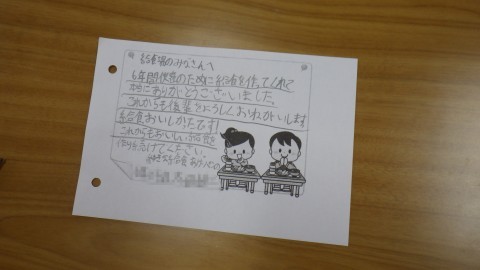 給食場のみなさんへ
6年間僕達のために給食を作ってくれて
本当にありがとうございました。
これからも後輩をよろしくおねがいします
給食おいしかたです!
これからもおいしい給食を
作り続けてください。
給食 ありがとの